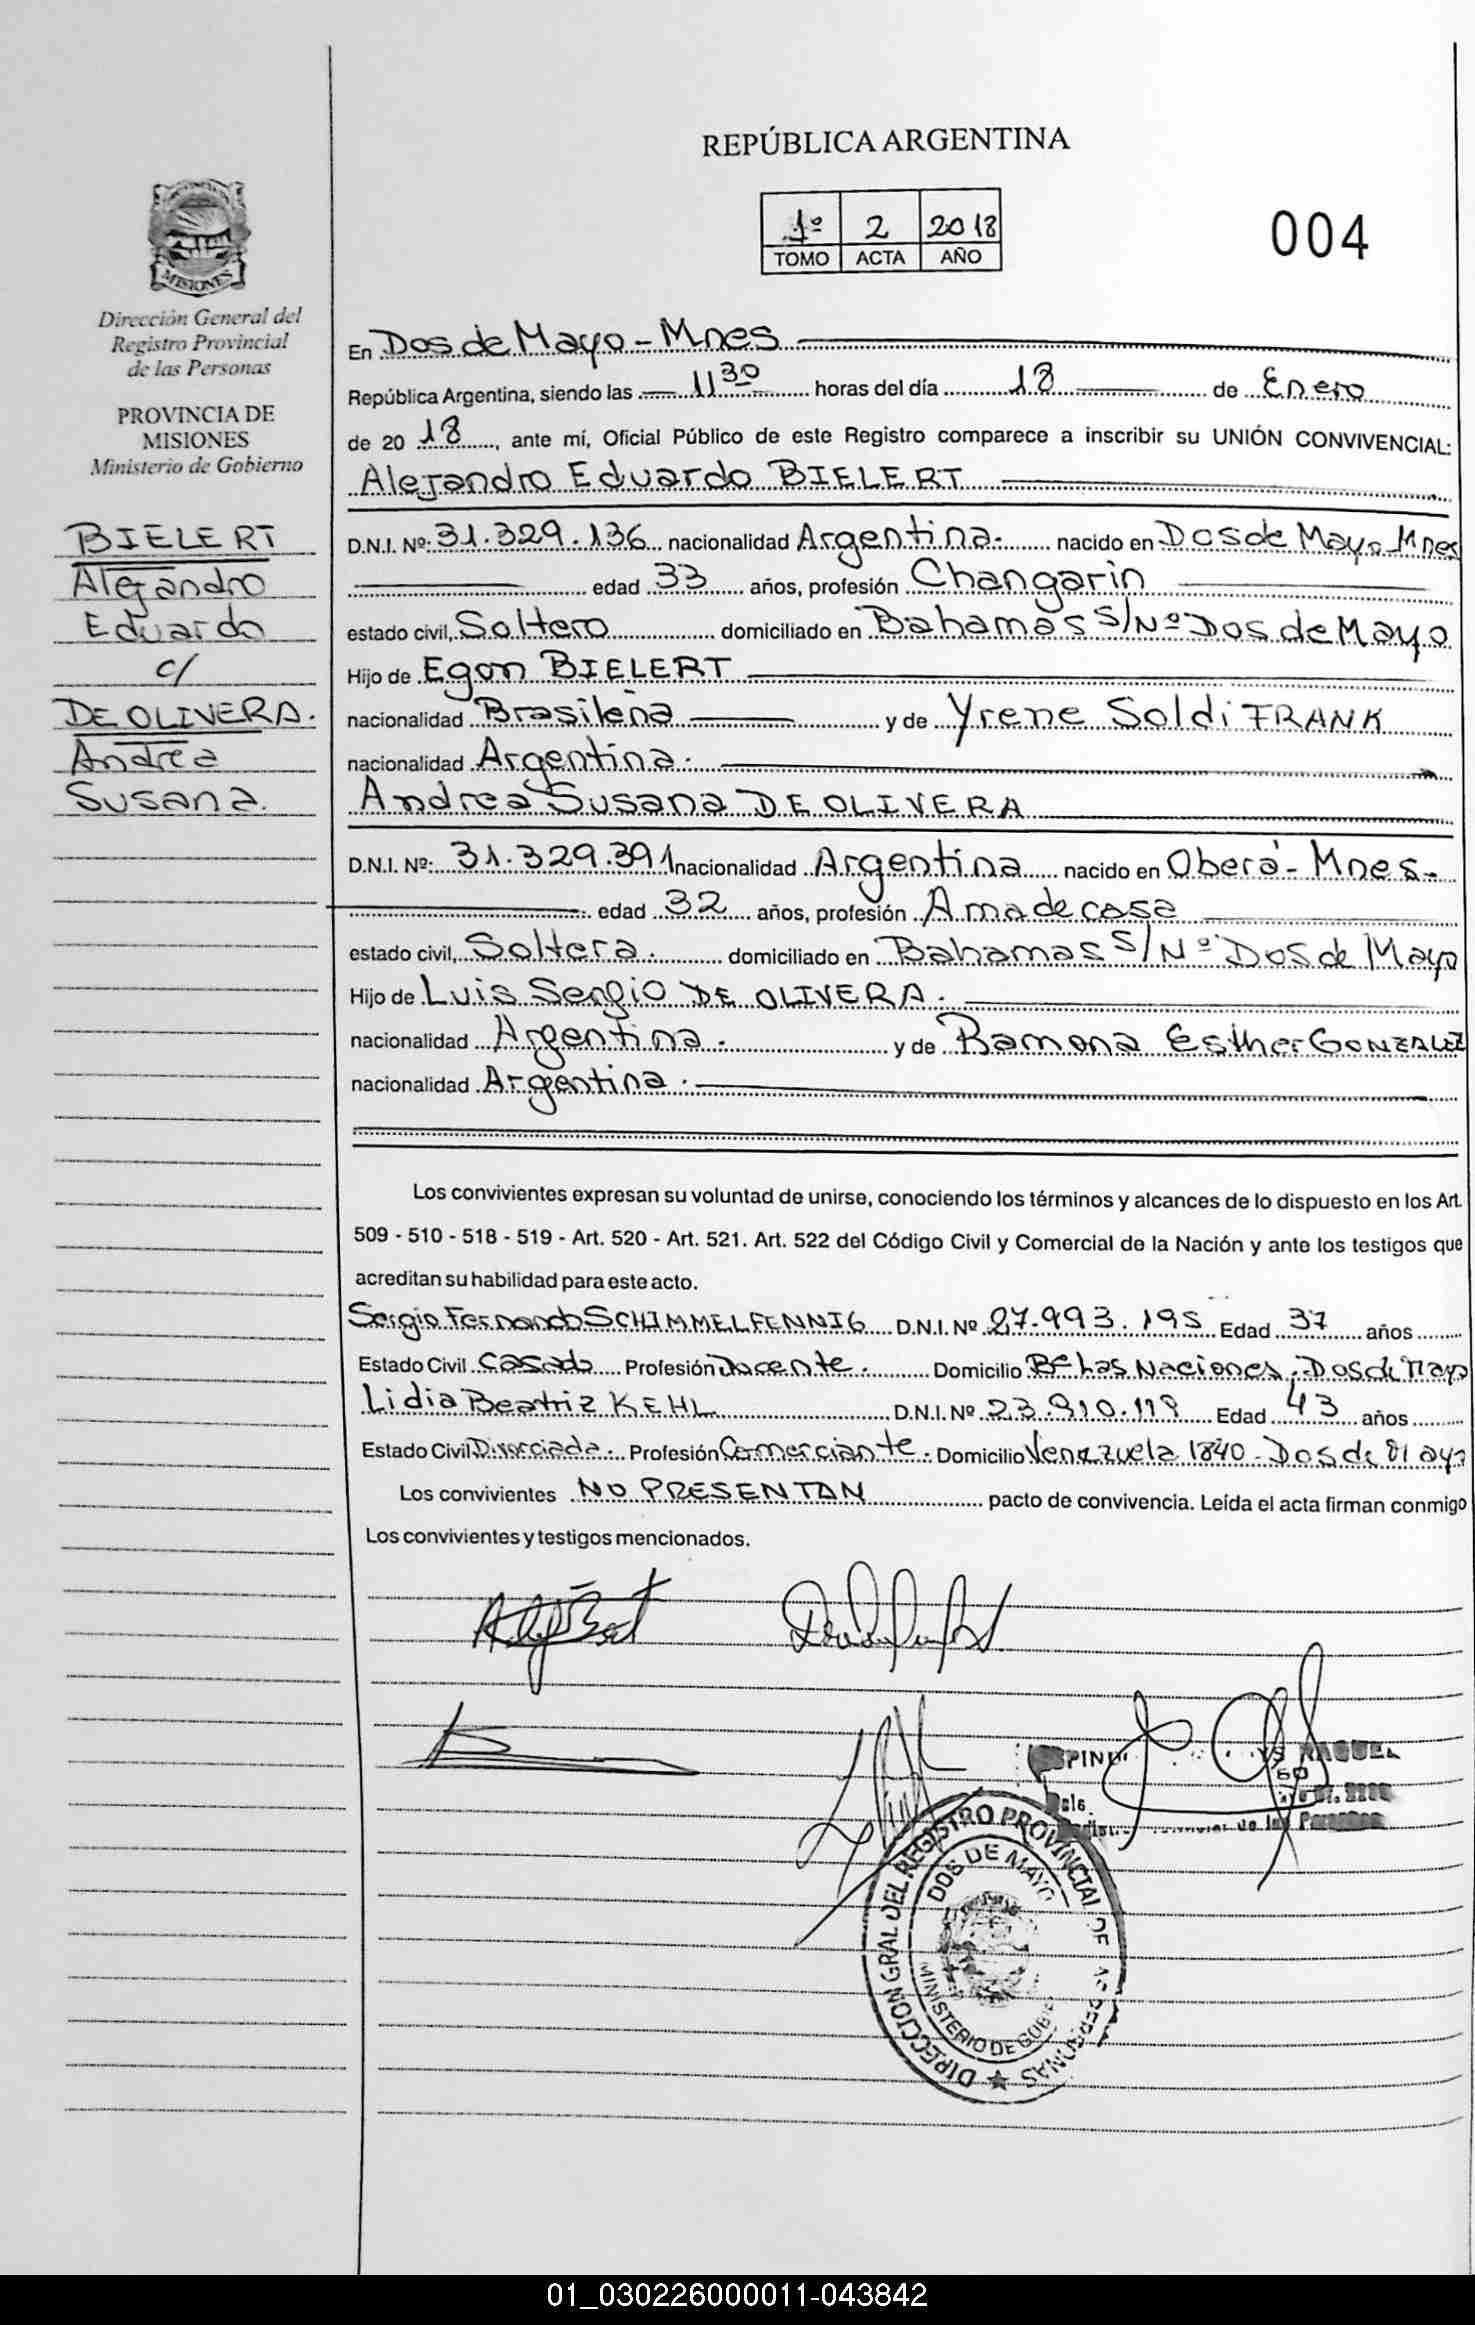 REPÚBLICA ARGENTINA
1º 2 2018
TOMO ACTA AÑO
004
MISIONES
Dirección General del
Registro Provincial
de las Personas
PROVINCIA DE
MISIONES
Ministerio de Gobierno
BIELERT
Alejandro
Eduardo
c/
DE OLIVERA.
Andrea
Susana.
En Dos de Mayo - Mnes
República Argentina, siendo las 11 30 horas del día 18 de Enero
de 20 18, ante mí, Oficial Público de este Registro comparece a inscribir su UNIÓN CONVIVENCIAL:
Alejandro Eduardo BIELERT
D.N.I. Nº: 31.329.136 nacionalidad Argentina. nacido en Dos de Mayo-Mnes
edad 33 años, profesión Changarin
estado civil, Soltero domiciliado en Bahamas S/Nº Dos de Mayo
Hijo de Egon BIELERT
nacionalidad Brasileña y de Yrene Soldi FRANK
nacionalidad Argentina.
Andrea Susana DE OLIVERA
D.N.I. Nº: 31.329.391 nacionalidad Argentina nacido en Oberá - Mnes-
edad 32 años, profesión Ama de casa
estado civil, Soltera. domiciliado en Bahamas S/Nº Dos de Mayo
Hijo de Luis Sergio DE OLIVERA.
nacionalidad Argentina. y de Ramona Esther GONZALEZ
nacionalidad Argentina.
Los convivientes expresan su voluntad de unirse, conociendo los términos y alcances de lo dispuesto en los Art.
509 - 510 - 518 - 519 - Art. 520 - Art. 521. Art. 522 del Código Civil y Comercial de la Nación y ante los testigos que
acreditan su habilidad para este acto.
Sergio Fernando SCHIMMELFENNIG D.N.I. Nº 27.993.195 Edad 37 años
Estado Civil Casado Profesión Docente. Domicilio Bº Las Naciones. Dos de Mayo
Lidia Beatriz KEHL D.N.I. Nº 23.910.119 Edad 43 años
Estado Civil Divorciada. Profesión Comerciante. Domicilio Venezuela 1840 - Dos de Mayo
Los convivientes NO PRESENTAN pacto de convivencia. Leída el acta firman conmigo
Los convivientes y testigos mencionados.
DIRECCION GRAL DEL REGISTRO PROVINCIAL DE LAS PERSONAS
DOS DE MAYO
MINISTERIO DE GOB
01_030226000011-043842